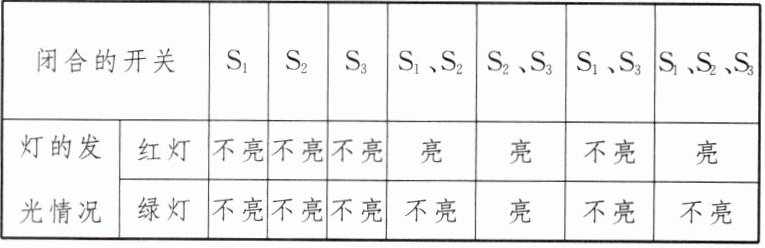 闭合的开关 S₁ S₂ S₃ S₁、S₂ S₂、S₃ S₁、S₃ S₁、S₂、S₃
灯的发 红灯 不亮 不亮 不亮 亮 亮 不亮 亮
光情况 绿灯 不亮 不亮 不亮 不亮 亮 不亮 不亮